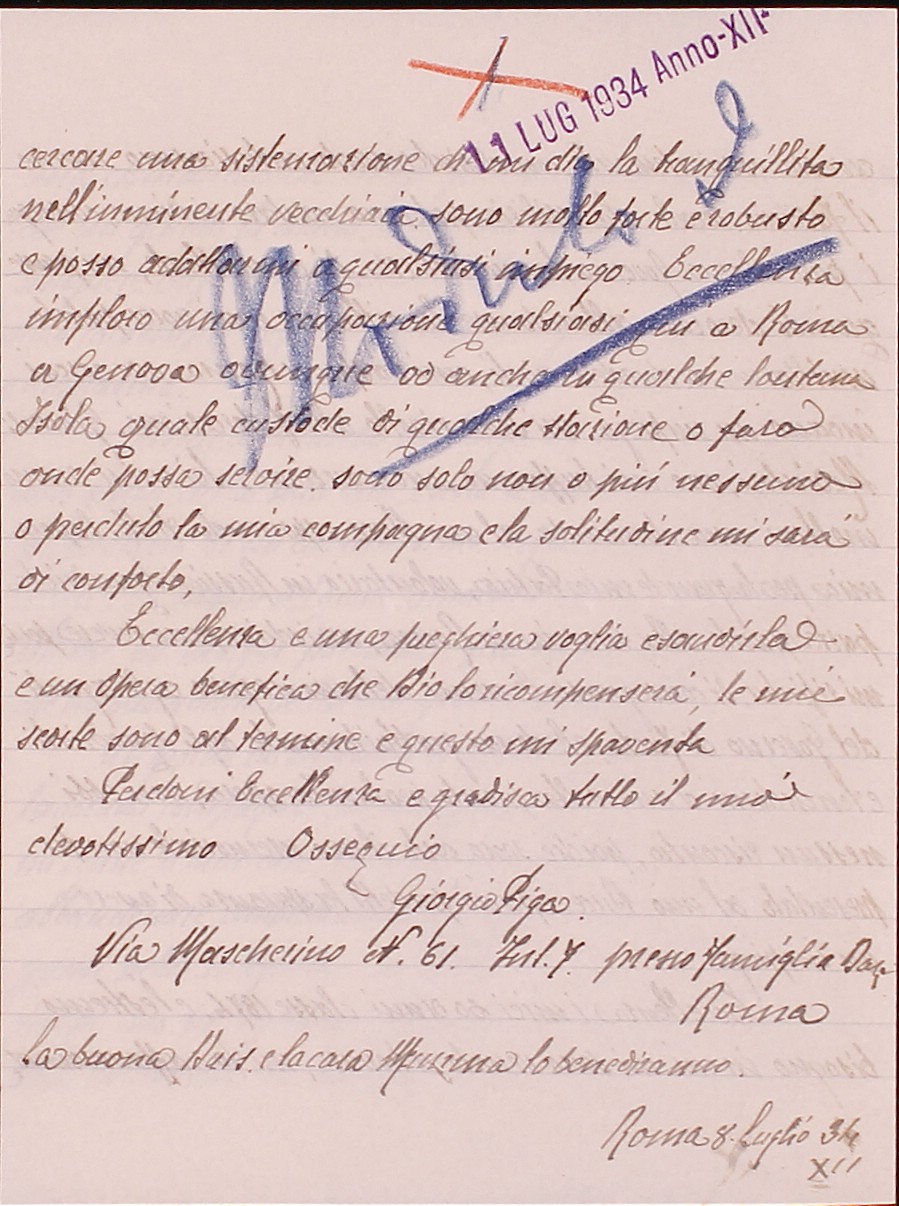 11 LUG 1934 Anno-XII
cercare una sistemazione che mi dia la tranquillita
nell'imminente vecchiaia. sono molto forte e robusto
e posso adattarmi a qualsiasi impiego. Eccellenza
imploro una occupazione qualsiasi qui a Roma
a Genova ovunque od anche in qualche lontana
Isola quale custode di qualche stazione o faro
onde possa servire. sono solo non o più nessuno
o perduto la mia compagna e la solitudine mi sarà
di conforto,
Eccellenza e una preghiera voglia esaudirla
e un Opera benefica che Dio lo ricompenserà, le mie
scorte sono al termine e questo mi spaventa
Perdoni Eccellenza e gradisca tutto il mio
devotissimo Ossequio
Giorgio Piga.
Via Mascherino N. 61. Int. 7. presso Famiglia
Roma
la buona e la cara Mamma lo benediranno.
Roma 8. Luglio 34
XII